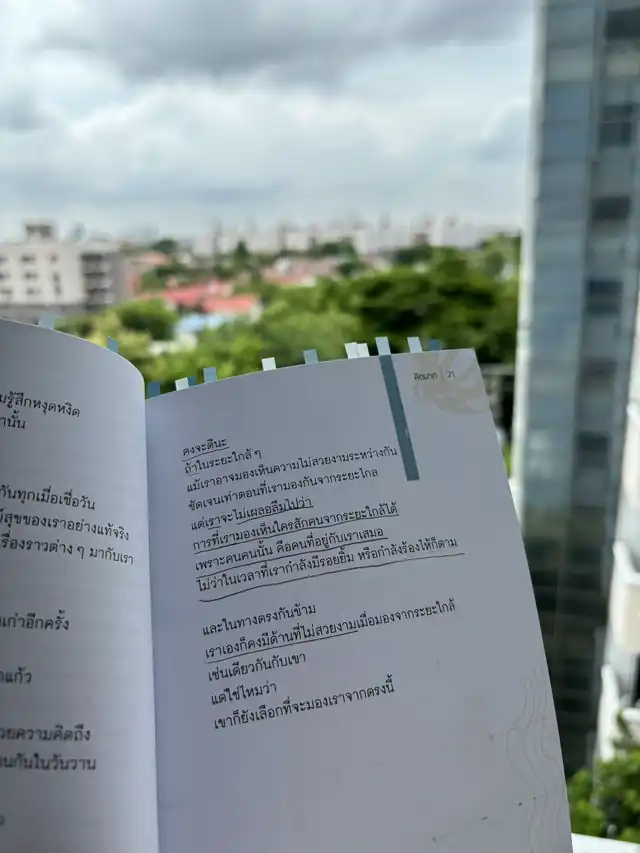 มรู้สึกหงุดหงิด
านั้น
กันทุกเมื่อเชื่อวัน
์สุขของเราอย่างแท้จริง
รื่องราวต่าง ๆ มากับเรา
เก่าอีกครั้ง
แก้ว
วยความคิดถึง
านกันในวันวาน
คิดมาก | 21
คงจะดีนะ
ถ้าในระยะใกล้ ๆ
แม้เราอาจมองเห็นความไม่สวยงามระหว่างกัน
ชัดเจนเท่าตอนที่เรามองกันจากระยะไกล
แต่เราจะไม่เผลอลืมไปว่า
การที่เรามองเห็นใครสักคนจากระยะใกล้ได้
เพราะคนคนนั้น คือคนที่อยู่กับเราเสมอ
ไม่ว่าในเวลาที่เรากำลังมีรอยยิ้ม หรือกำลังร้องไห้ก็ตาม
และในทางตรงกันข้าม
เราเองก็คงมีด้านที่ไม่สวยงามเมื่อมองจากระยะใกล้
เช่นเดียวกันกับเขา
แต่ใช่ไหมว่า
เขาก็ยังเลือกที่จะมองเราจากตรงนี้